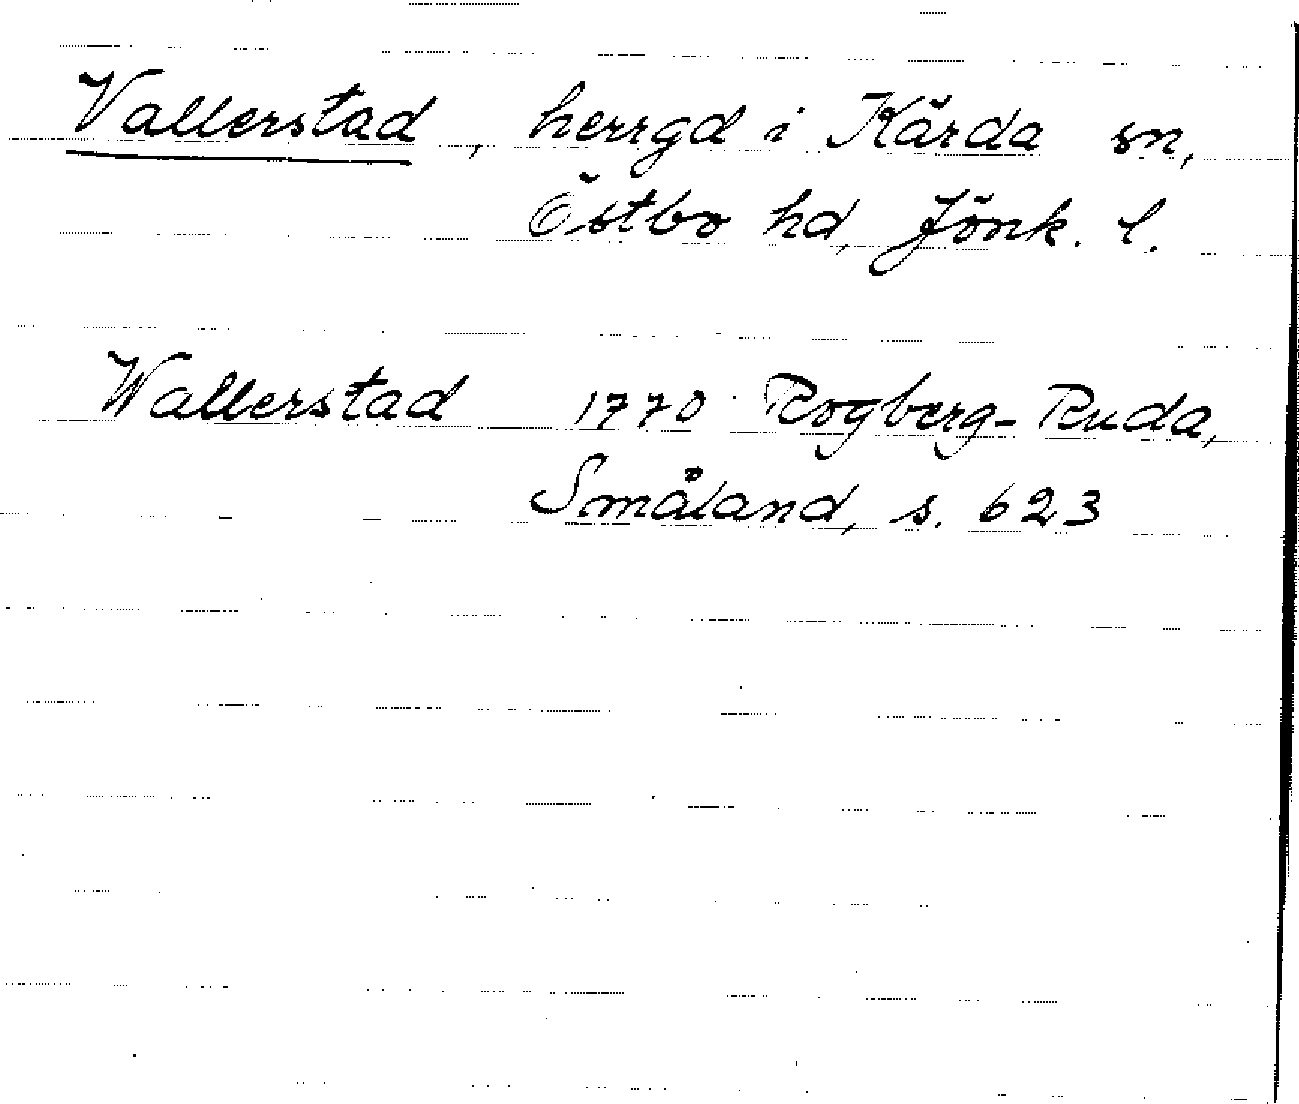 Vallerstad, herrgd i Kärda sn,
Östbo hd, Jönk. l.
Wallerstad 1770 Rogberg-Ruda,
Småland, s. 623